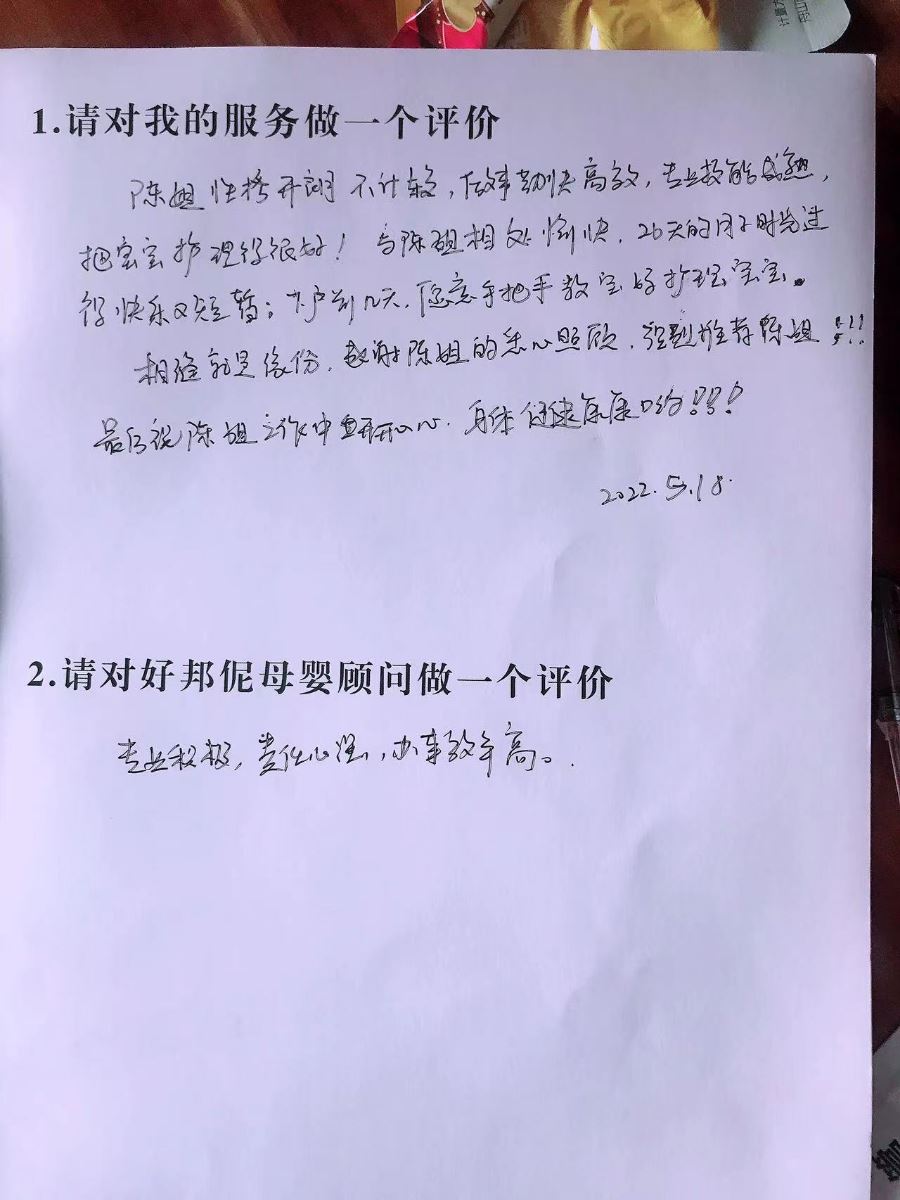 1.请对我的服务做一个评价
陈姐性格开朗不计较,做事勤快高效,专业技能成熟,
把宝宝护理得很好!与陈姐相处愉快,26天的月子时光过
得快乐又短暂;下户前几天,愿意手把手教宝妈护理宝宝。
相逢就是缘份,感谢陈姐的悉心照顾,强烈推荐陈姐!!!
最后祝陈姐工作中开开心心.身体健健康康哟!!!
2022.5.18.
2.请对好邦伲母婴顾问做一个评价
专业积极,责任心强,办事效率高。